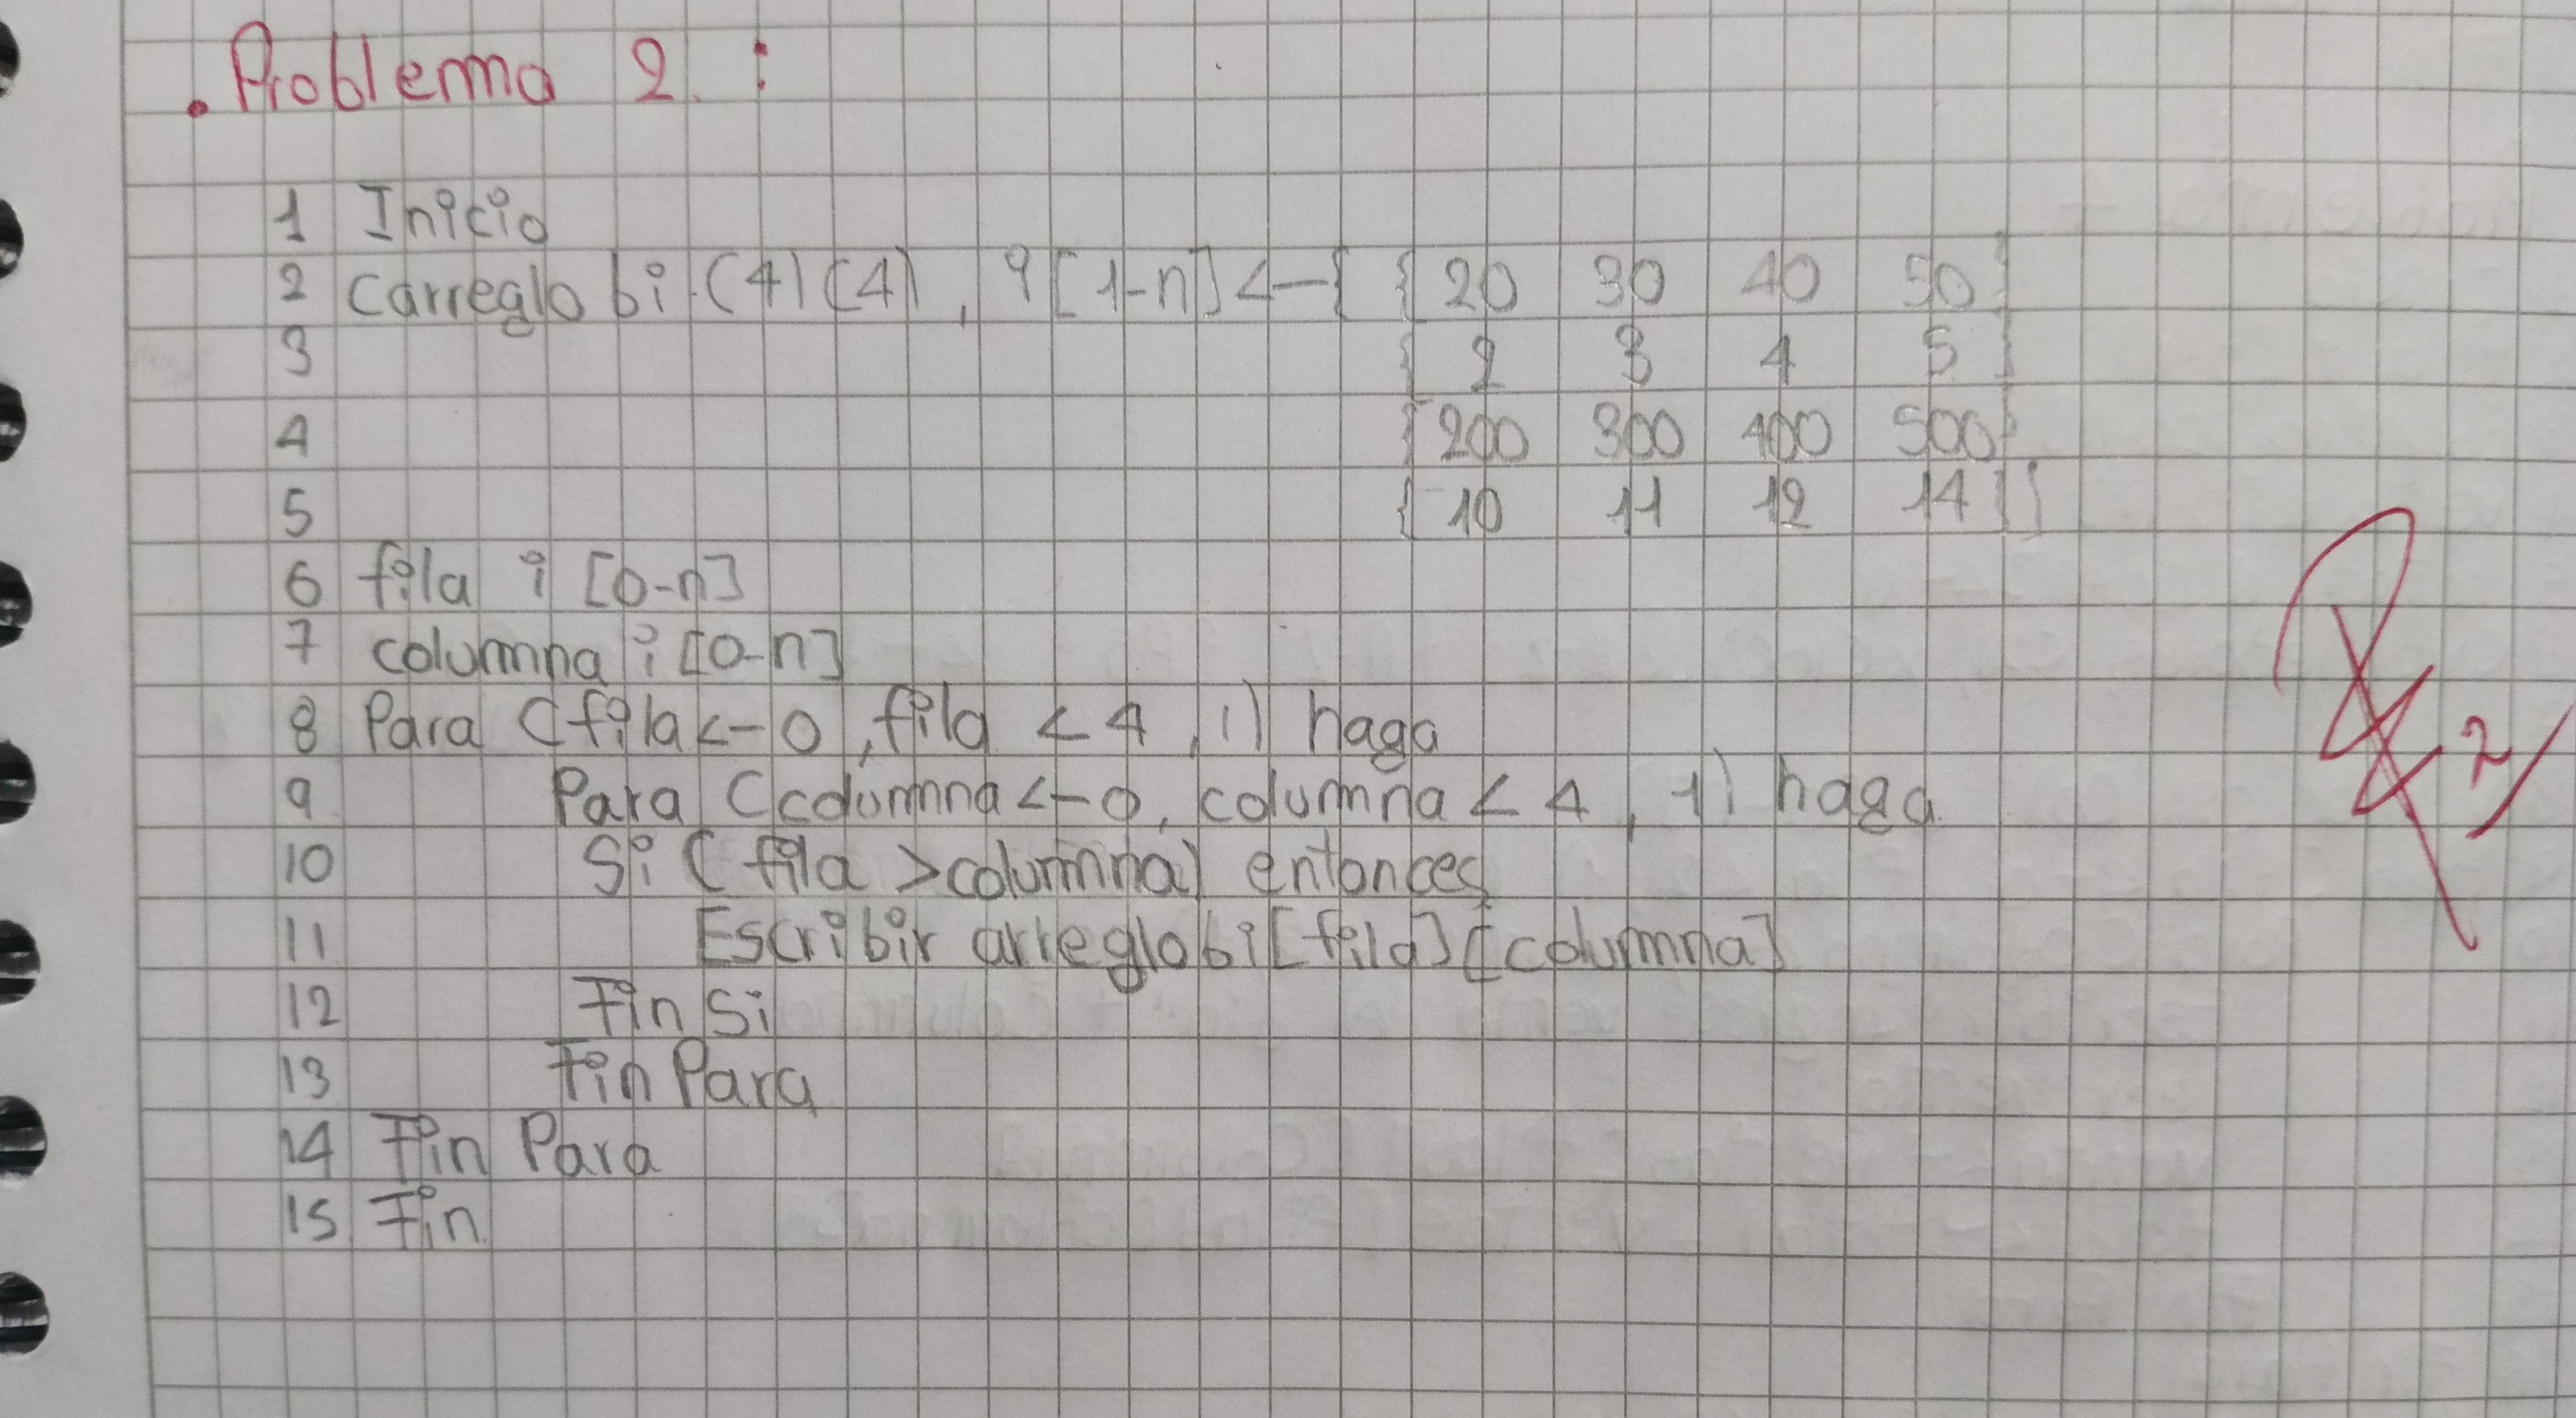 . Problema 2. :
1 Inicio
2 Carreglo bi (4) (4), i [1-n] <- { { 20 30 40 50 }
3 { 2 3 4 5 }
4 { 200 300 400 500 }
5 { 10 11 12 14 } }
6 fila i [0-n]
7 columna i [0-n]
8 Para (fila <- 0, fila < 4, 1) haga
9 Para (columna <- 0, columna < 4, 1) haga
10 Si (fila > columna) entonces
11 Escribir arreglobi [fila] [columna]
12 Fin Si
13 Fin Para
14 Fin Para
15 Fin